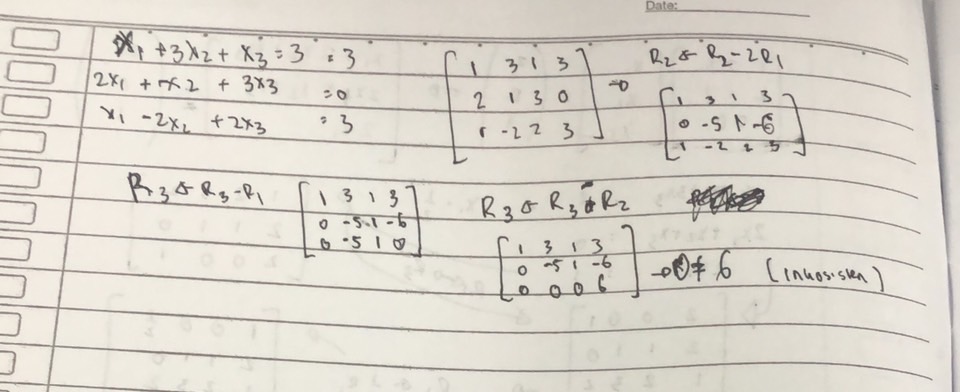 Date:
x1 + 3x2 + x3 = 3 = 3
2x1 + x2 + 3x3 = 0
x1 - 2x2 + 2x3 = 3
1 3 1 3
2 1 3 0
1 -2 2 3
→
R2 ← R2 - 2R1
1 3 1 3
0 -5 1 -6
1 -2 2 3
R3 ← R3 - R1
1 3 1 3
0 -5 1 -6
0 -5 1 0
R3 ← R3 - R2
1 3 1 3
0 -5 1 -6
0 0 0 6
→ 0 ≠ 6 (inkosisten)